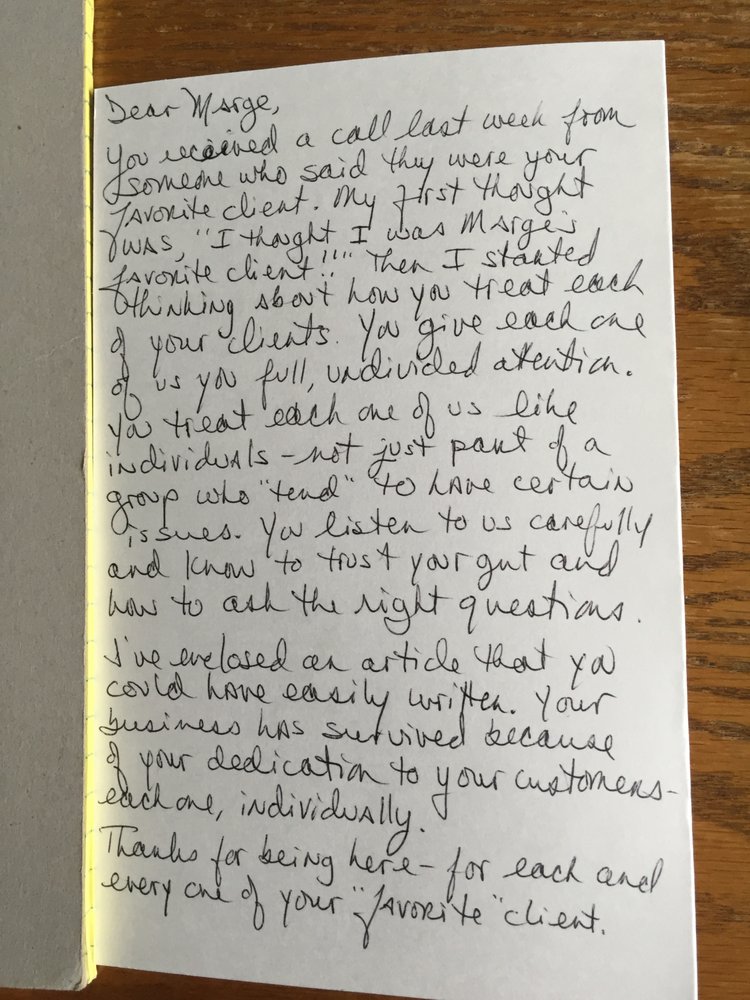 Dear Marge,
You received a call last week from
someone who said they were your
favorite client. My first thought
was, "I thought I was Marge's
favorite client!!" Then I started
thinking about how you treat each
of your clients. You give each one
of us you full, undivided attention.
You treat each one of us like
individuals - not just part of a
group who "tend" to have certain
issues. You listen to us carefully
and know to trust your gut and
how to ask the right questions.
I've enclosed an article that you
could have easily written. Your
business has survived because
of your dedication to your customers-
each one, individually.
Thanks for being here - for each and
every one of your "favorite" client.